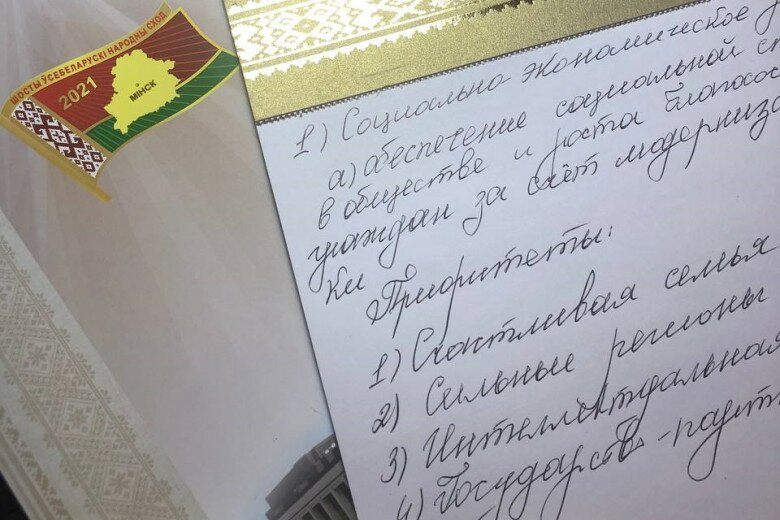 ШОСТЫ ЎСЕБЕЛАРУСКІ НАРОДНЫ СХОД
2021
МІНСК
1) Социально экономическое
а) обеспечение социальной с
в обществе и роста благосос
граждан за счёт модерниз
ки
Приоритеты:
1) Счастливая семья
2) Сильные регионы
3) Интеллектуальная
4) Государство-парт